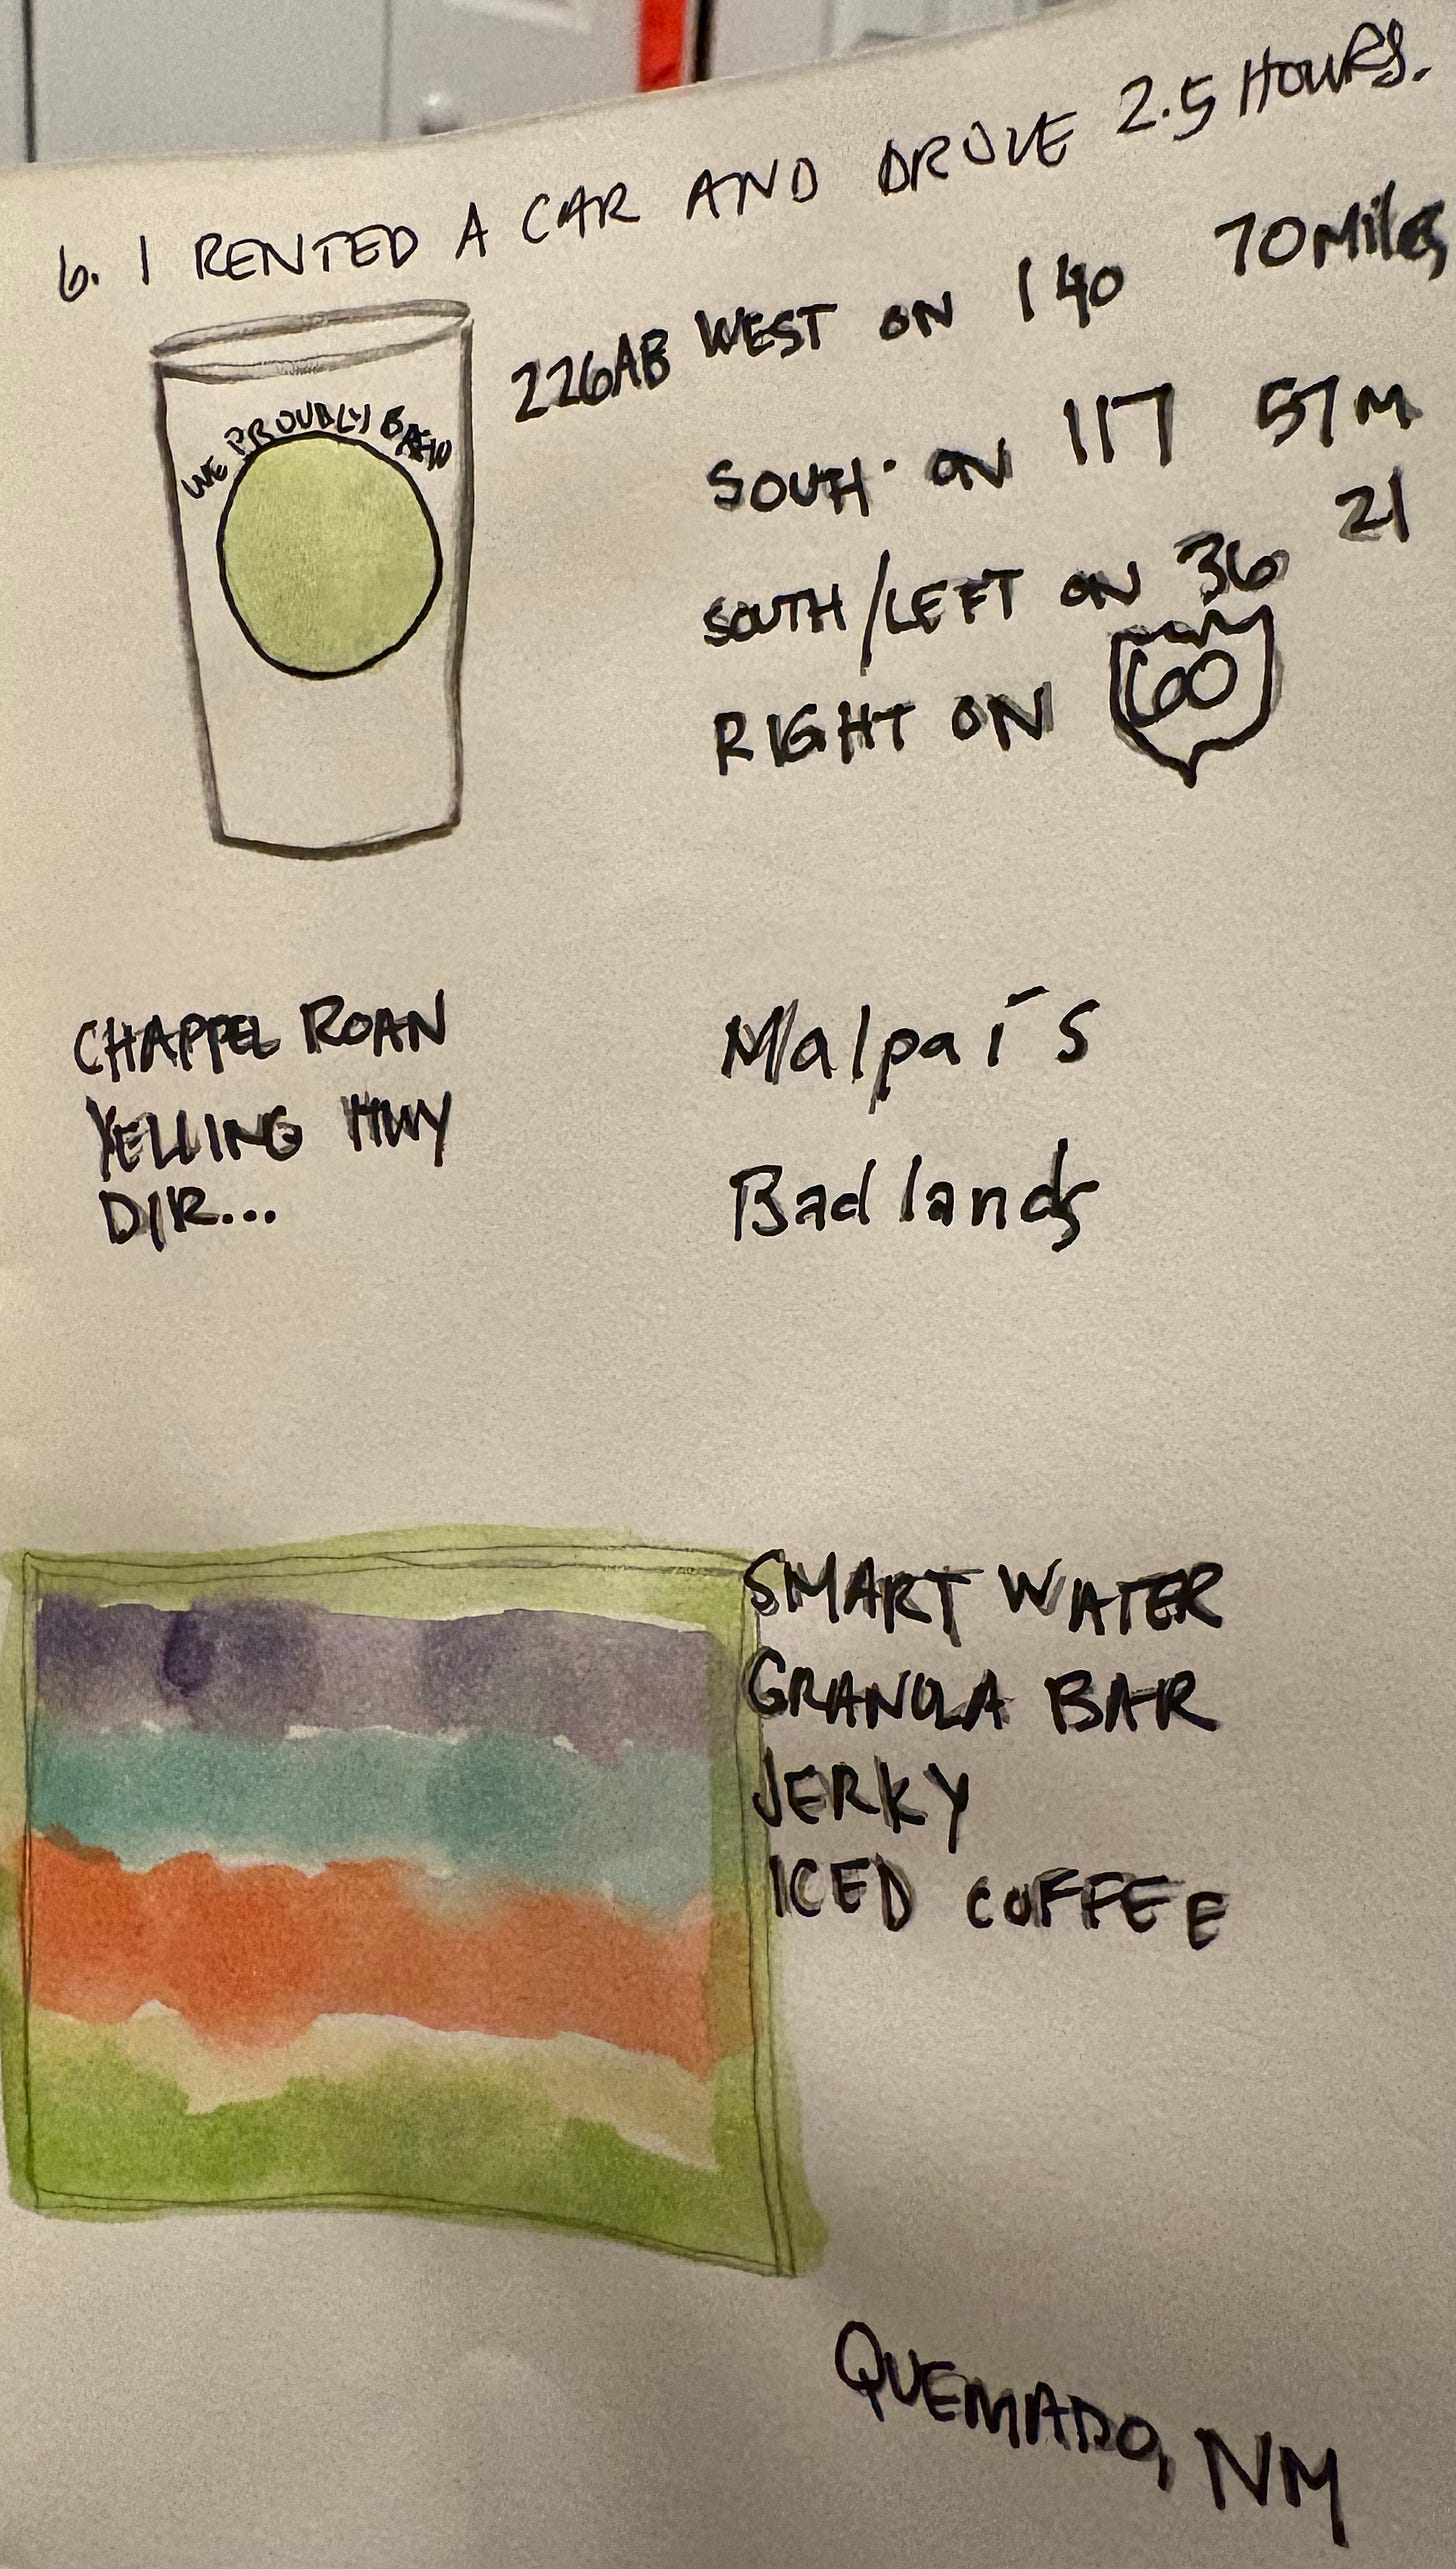 6. I RENTED A CAR AND DROVE 2.5 HOURS.
WE PROUDLY BREW
226AB WEST ON I 40 70 Miles
SOUTH ON 117 57 M
SOUTH/LEFT ON 36 21
RIGHT ON 60
CHAPPEL ROAN
YELLING HWY
DIR...
Malpaís
Badlands
SMART WATER
GRANOLA BAR
JERKY
ICED COFFEE
QUEMADO, NM